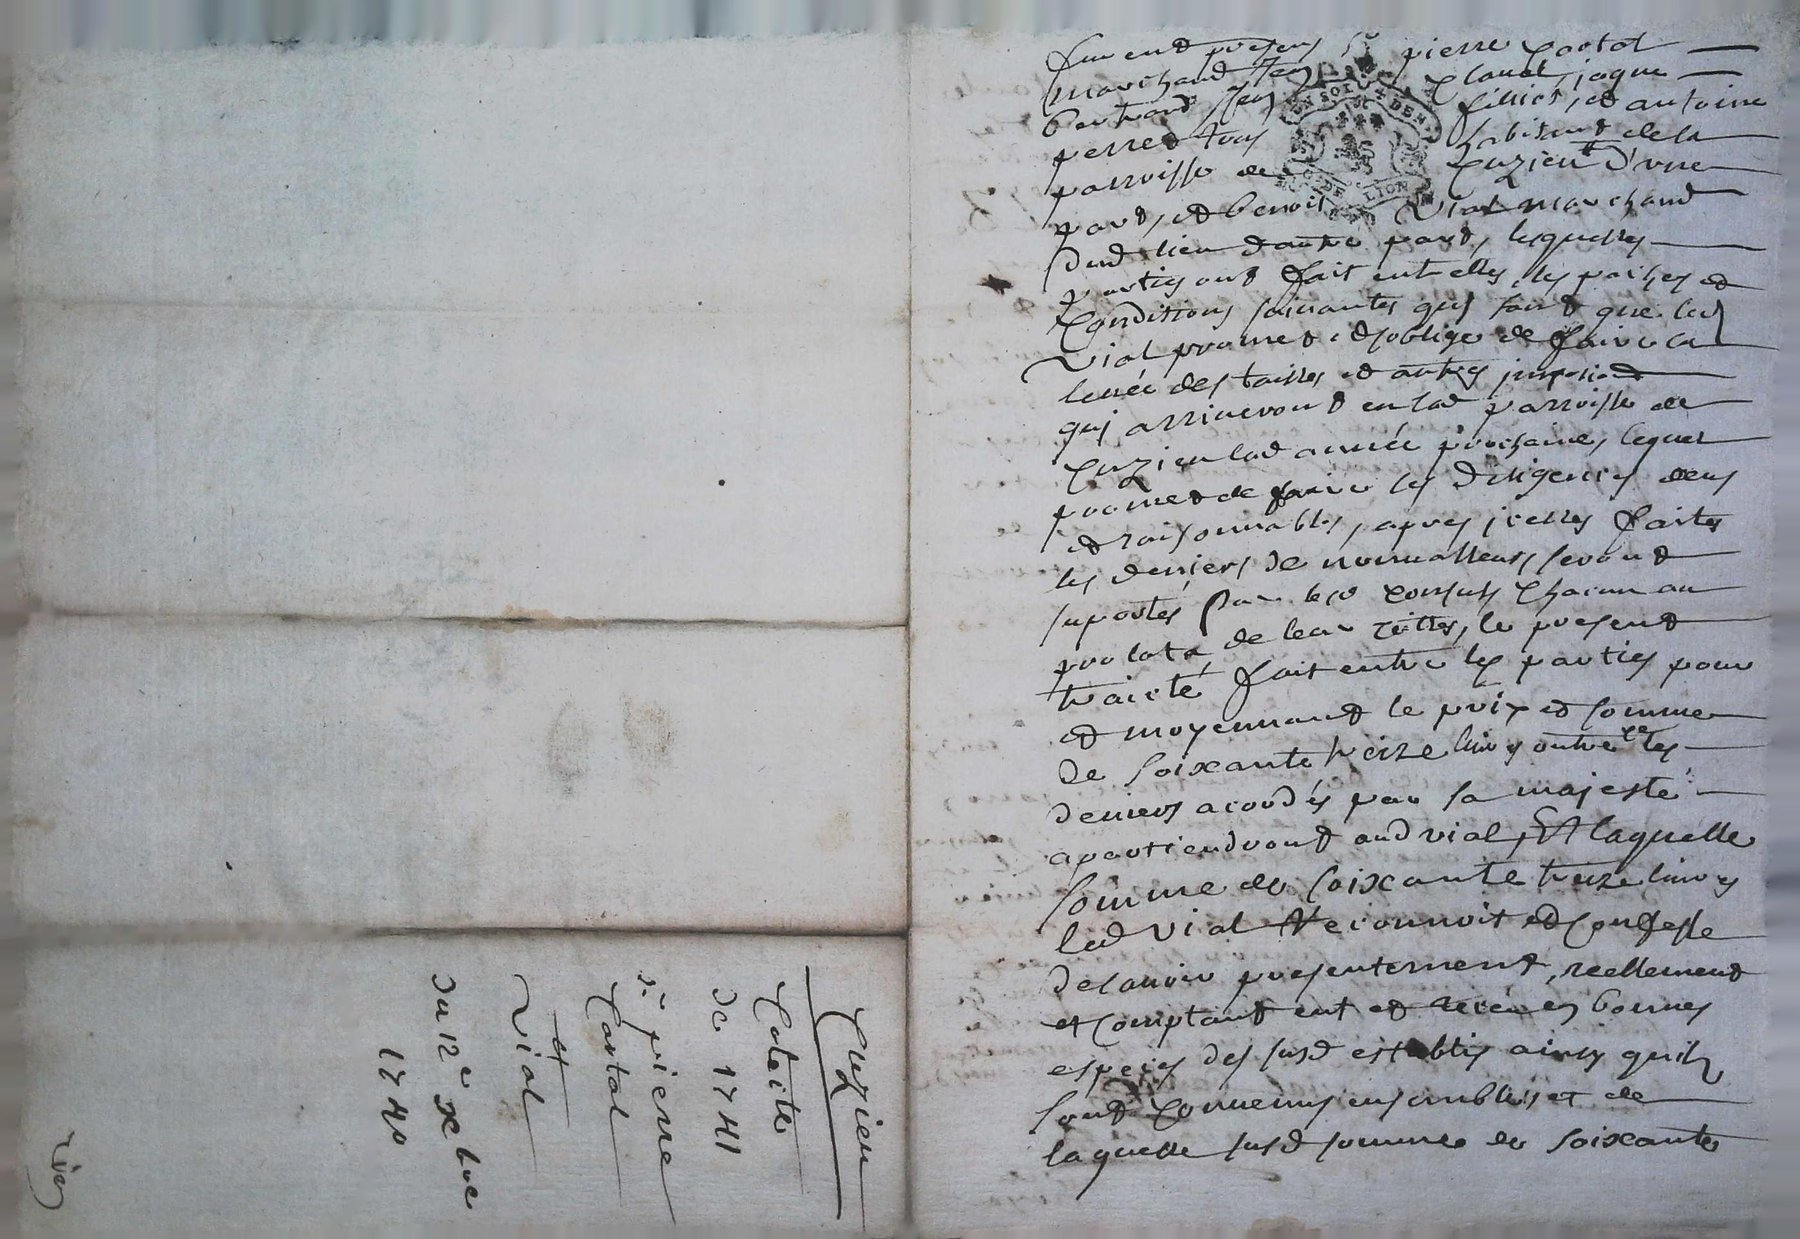 furent presens Sr pierre Cartal
marchand Jean Claud, jaque
bertrand Jean fillict, et antoine
perret tous habitant de la
parroisse de Cuzieu d'une
part, et benoit Vial marchand
dud lieu dautre part, lesquelles
parties ont fait entr elles les paches et
Conditions suivantes qui sont que led
Vial promet et soblige de faire la
levée des tailles et autres imposions
qui arriveront en lad parroisse de
Cuzieu lad année prochaine, lequel
promet de faire les diligences deues
et raisonnables, apres icelles faites
les deniers de nonvalleurs seront
suportés par les consuls chacun au
prolata de leur cottes, le present
traicté fait entre les parties pour
et moyennant le prix et somme
de soixante treize livres outre ce les
deniers acordés par sa majesté
apartiendront aud vial, Et laquelle
somme de soixante treize livres
led Vial Reconnoit et Confesse
de lavoir presentement, reellement
et Comptant eut et receu en bonnes
especes des susd establis ainsy quils
sont convenus ensembles et de
laquelle susd somme de soixante
EN SOL DEN
G. DE LION
Cuzieu
Cotaite
de 1741
Sr pierre
Cartal
et
Vial
du 12e xbre
1740